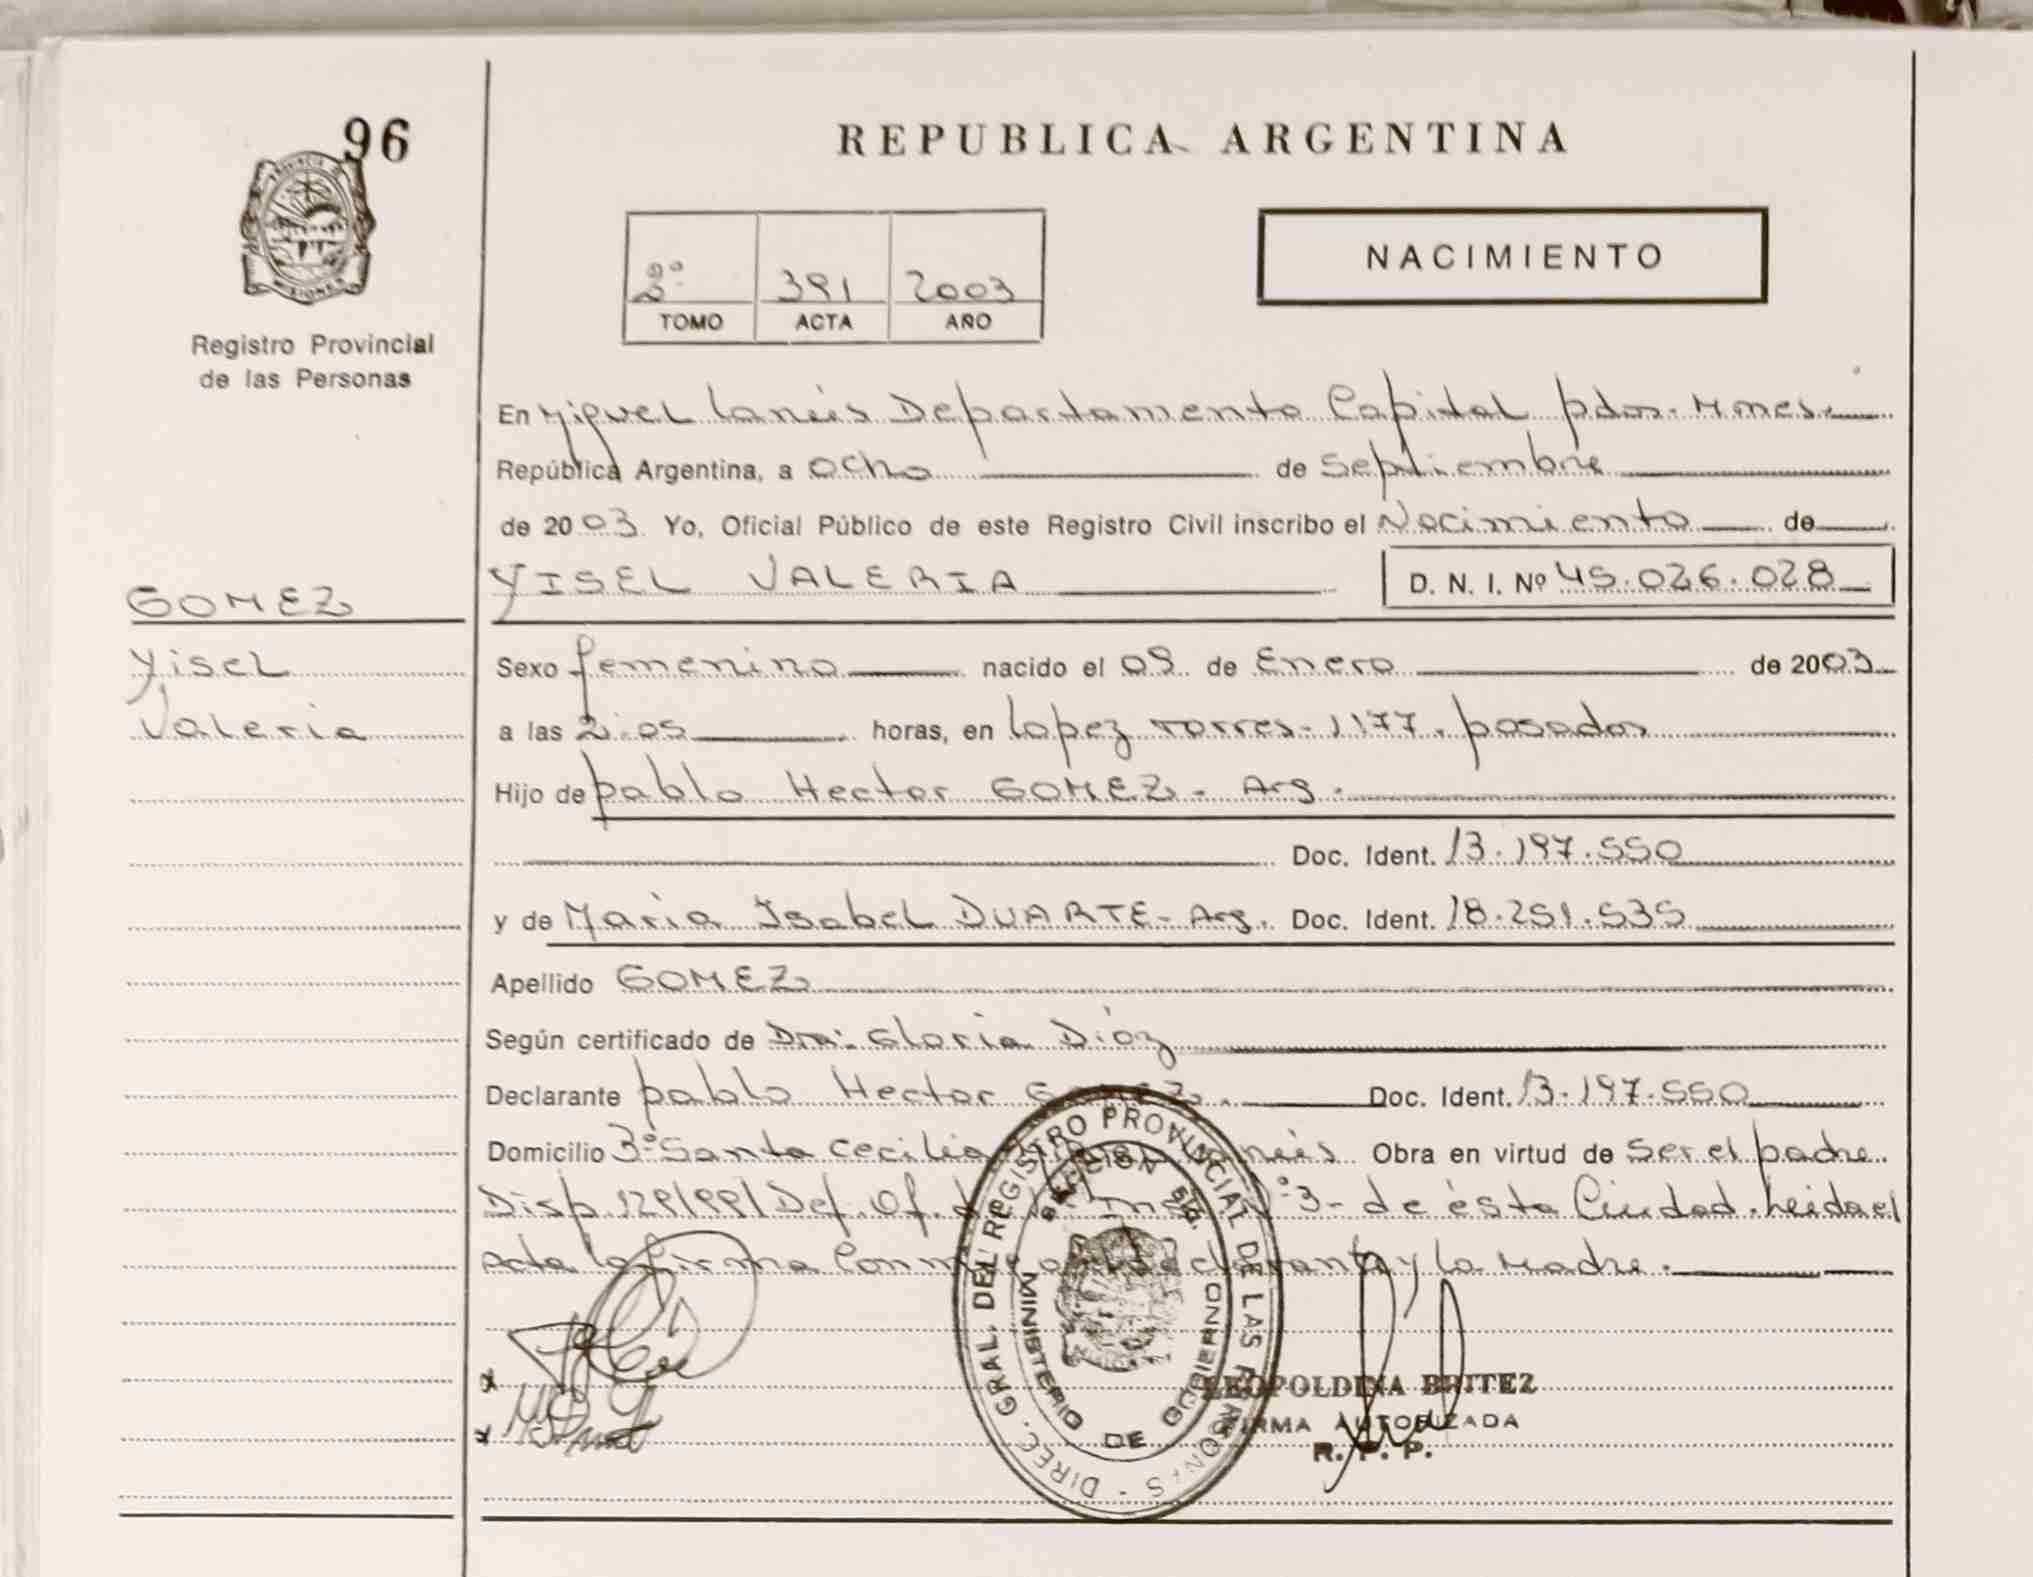 96
REPUBLICA ARGENTINA
PROVINCIA DE
MISIONES
Registro Provincial
de las Personas
2º 391 2003
TOMO ACTA AÑO
NACIMIENTO
En Miguel Lanús Departamento Capital pdas. Mnes.
República Argentina, a ocho de Septiembre
de 2003 Yo, Oficial Público de este Registro Civil inscribo el Nacimiento de
GOMEZ
Yisel
Valeria
YISEL VALERIA D. N. I. Nº 45.026.028
Sexo femenino nacido el 09 de Enero de 2003
a las 2:05 horas, en Lopez Torres - 1177. posadas
Hijo de pablo Hector GOMEZ - Arg.
Doc. Ident. 13.197.550
y de Maria Isabel DUARTE - Arg. Doc. Ident. 18.251.535
Apellido GOMEZ
Según certificado de Dra. Gloria Díaz
Declarante pablo Hector GOMEZ. Doc. Ident. 13.197.550
Domicilio 3º Santa Cecilia Miguel Lanús Obra en virtud de ser el padre
Disp. 129/99/ Def. Of. de Nº 3 - de ésta Ciudad. Leida el
Acta la firma Conmigo el declarante y la Madre.
DIREC. GRAL. DEL REGISTRO PROVINCIAL DE LAS PERSONAS
MINISTERIO DE GOBIERNO
LEOPOLDINA BRITEZ
FIRMA AUTORIZADA
R. P. P.